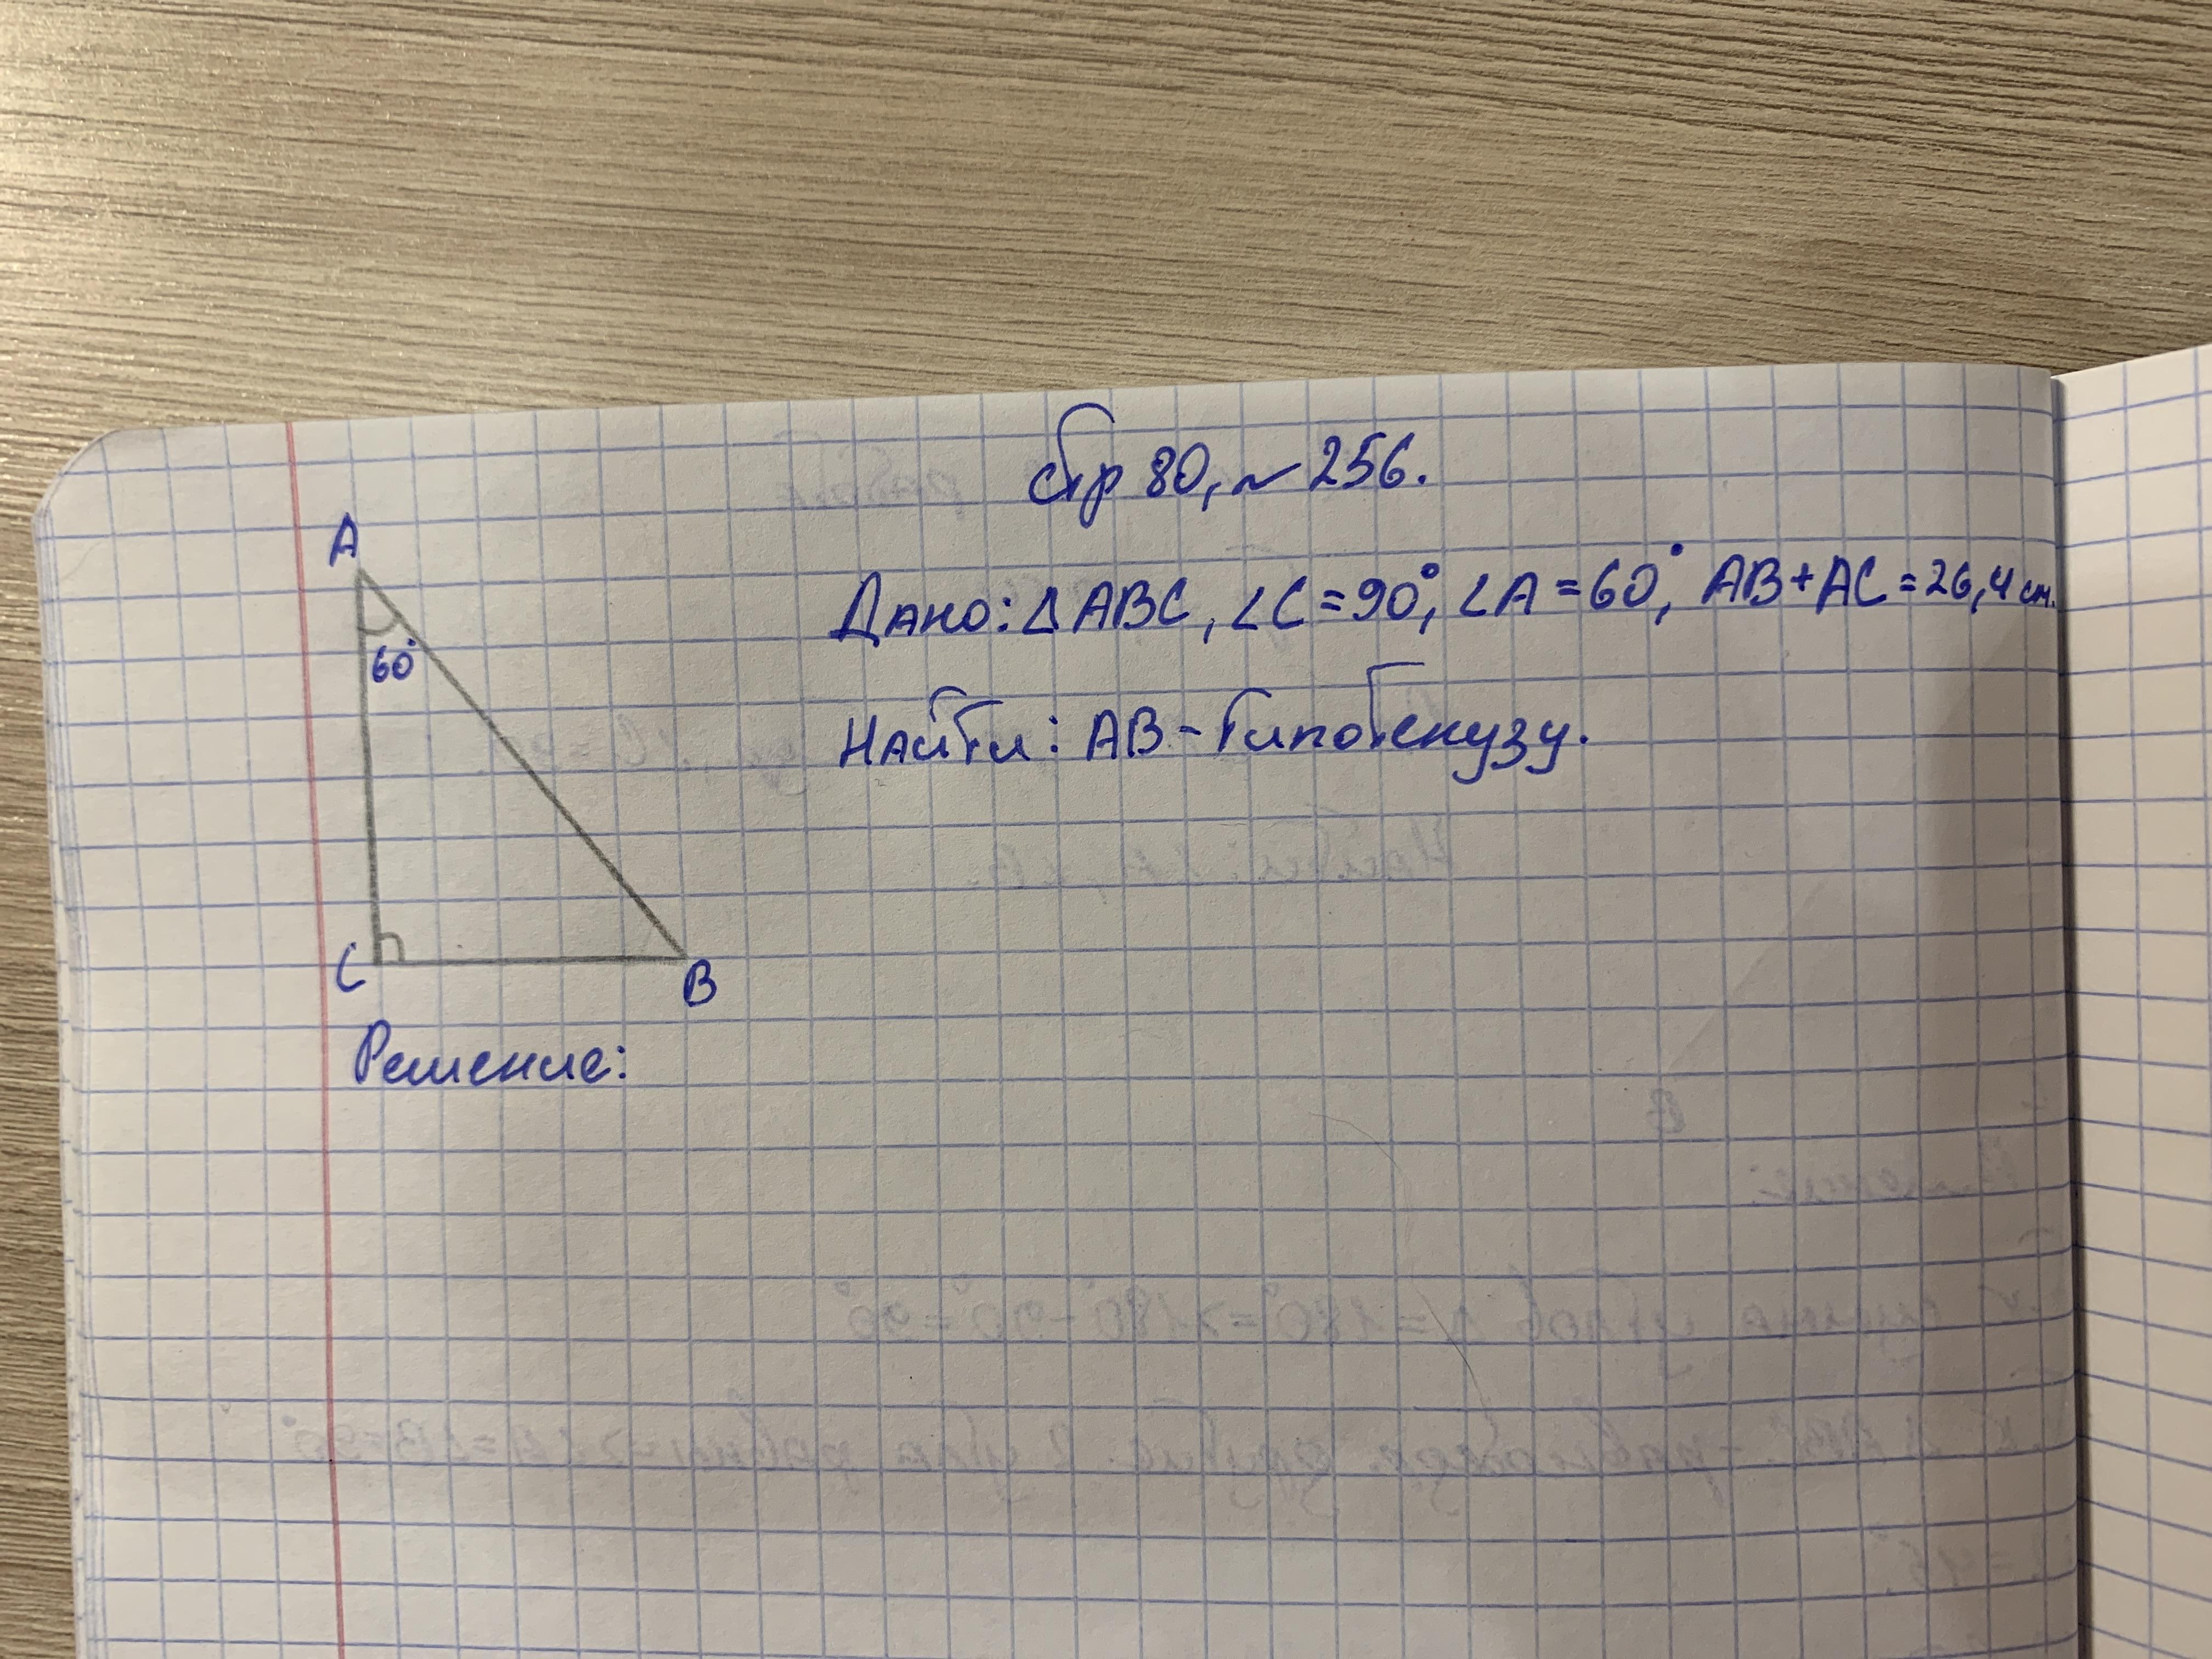 стр 80, ~ 256.
A
60°
C
B
Дано: Δ ABC, ∠C = 90°, ∠A = 60°, AB + AC = 26,4 см.
Найти: AB - гипотенузу.
Решение: